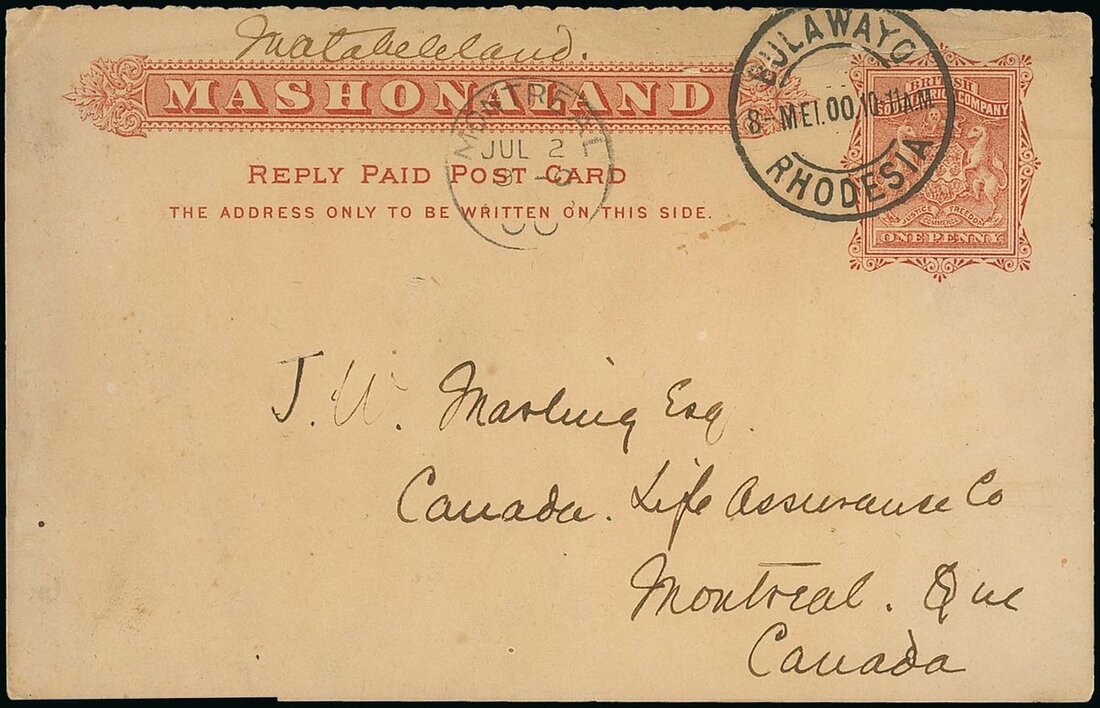 Matabeleland.
MASHONALAND
REPLY PAID POST CARD
THE ADDRESS ONLY TO BE WRITTEN ON THIS SIDE.
MONTREAL
JUL 2
00
BULAWAYO
8-MEI.00,10-11AM
RHODESIA
BRITISH
SOUTH AFRICA COMPANY
JUSTICE FREEDOM
COMMERCE
ONE PENNY
J. W. Marling Esq.
Canada. Life Assurance Co
Montreal. Que
Canada